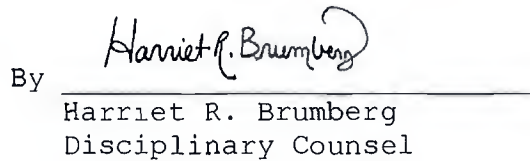 Harriet R. Brumberg
By
Harriet R. Brumberg
Disciplinary Counsel